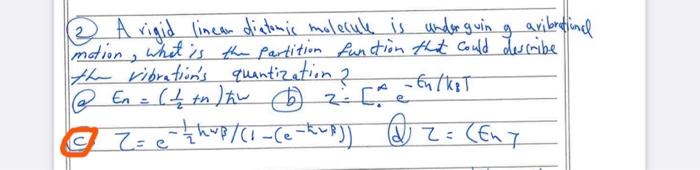 ② A rigid linear diatomic molecule is underguin g avibrational
motion, what is the partition function that could describe
the vibration's quantization?
ⓐ En = (½ + n) ħω ⓑ Z = Σ₀^∞ e^-En/kBT
ⓒ Z = e^-½hνβ/(1-(e^-hνβ)) ⓓ Z = ⟨En⟩